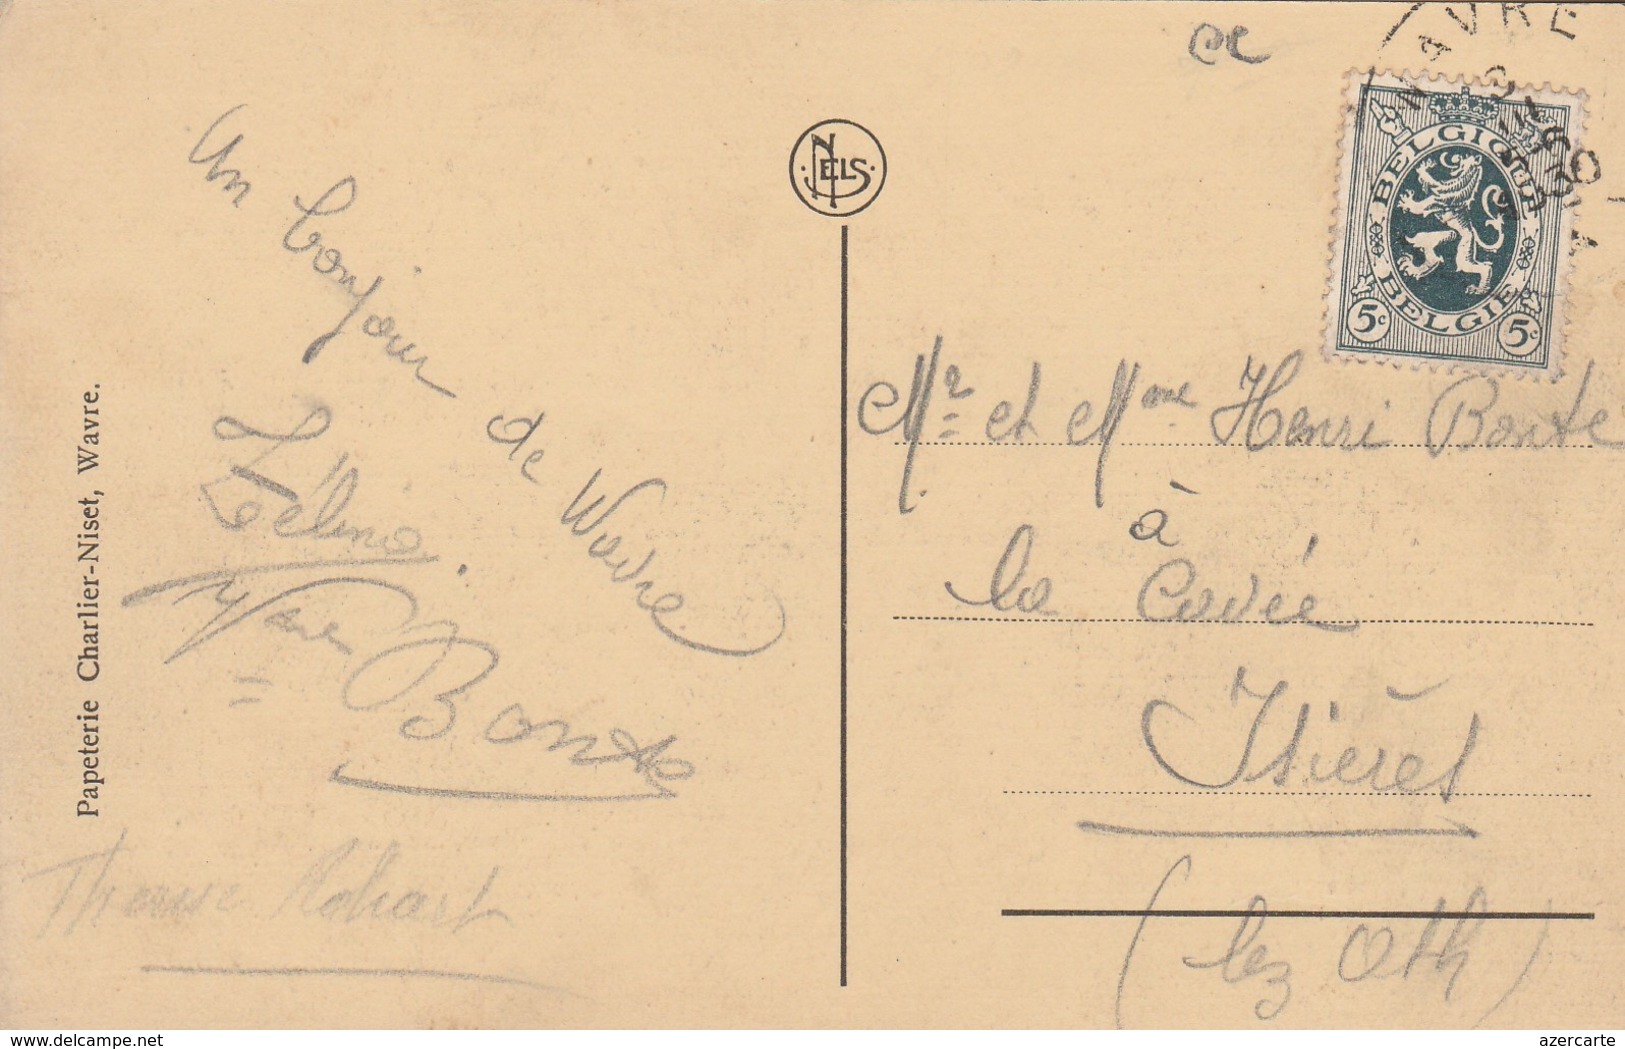 Un bonjour
de Wavre
Zélma
Bonte
Therese
Papeterie Charlier-Niset, Wavre.
NELS
WAVRE
BELGIQUE
BELGIE
5c 5c
Mr et Mme Henri Bonte
à
la Cavée
Isières
(lez Ath)
delcampe.net
azercarte